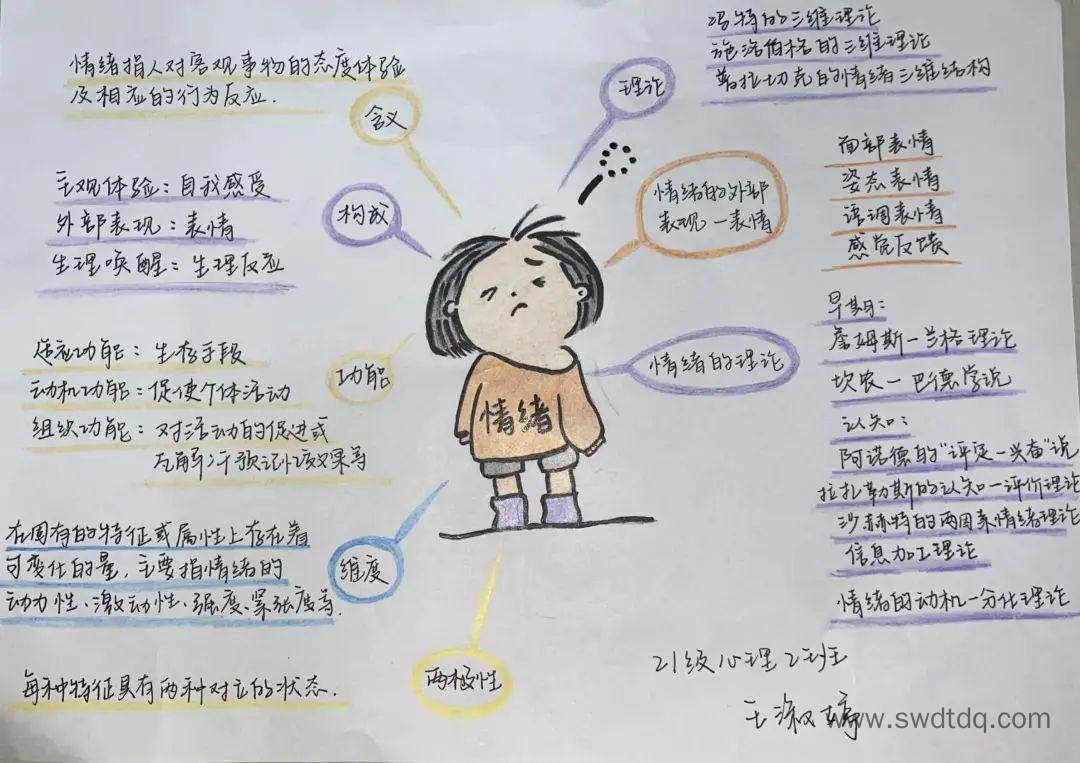 情绪指人对客观事物的态度体验
及相应的行为反应.
含义
主观体验：自我感受
外部表现：表情
生理唤醒：生理反应
构成
适应功能：生存手段
动机功能：促使个体活动
组织功能：对活动的促进或
瓦解；干预记忆效果等
功能
在固有的特征或属性上存在着
可变化的量，主要指情绪的
动力性、激动性、强度、紧张度等.
维度
每种特征具有两种对立的状态.
两极性
情绪
理论
冯特的三维理论
施洛伯格的三维理论
普拉切克的情绪三维结构
情绪的外部
表现－表情
面部表情
姿态表情
语调表情
感觉反馈
情绪的理论
早期：
詹姆斯－兰格理论
坎农－巴德学说
认知：
阿诺德的“评定－兴奋”说
拉扎勒斯的认知－评价理论
沙赫特的两因素情绪理论
信息加工理论
情绪的动机－分化理论
21级心理2班
王淑婷
www.swdtdq.com